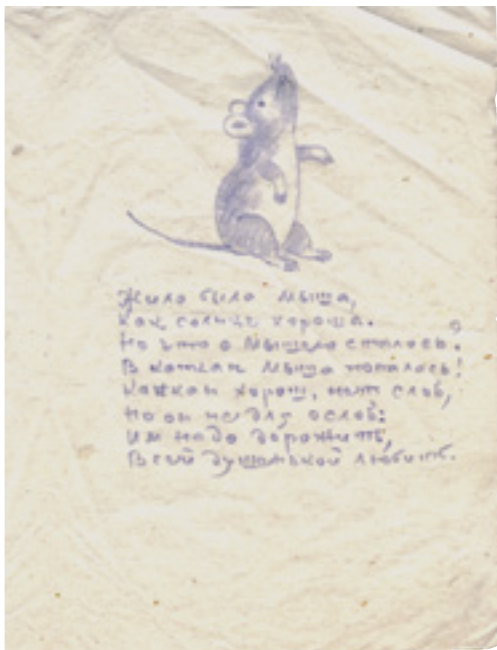 Жила была мыша,
Как солнце хороша.
Но что с мышею сталось?
В капкан мыша попалось!
Капкан хорош, нет слов,
Но он не для ослов:
Им надо дорожить,
Всей душенькой любить.